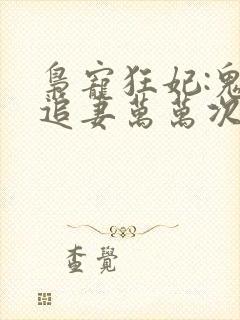 梟寵狂妃:鬼
追妻萬萬次
查覺